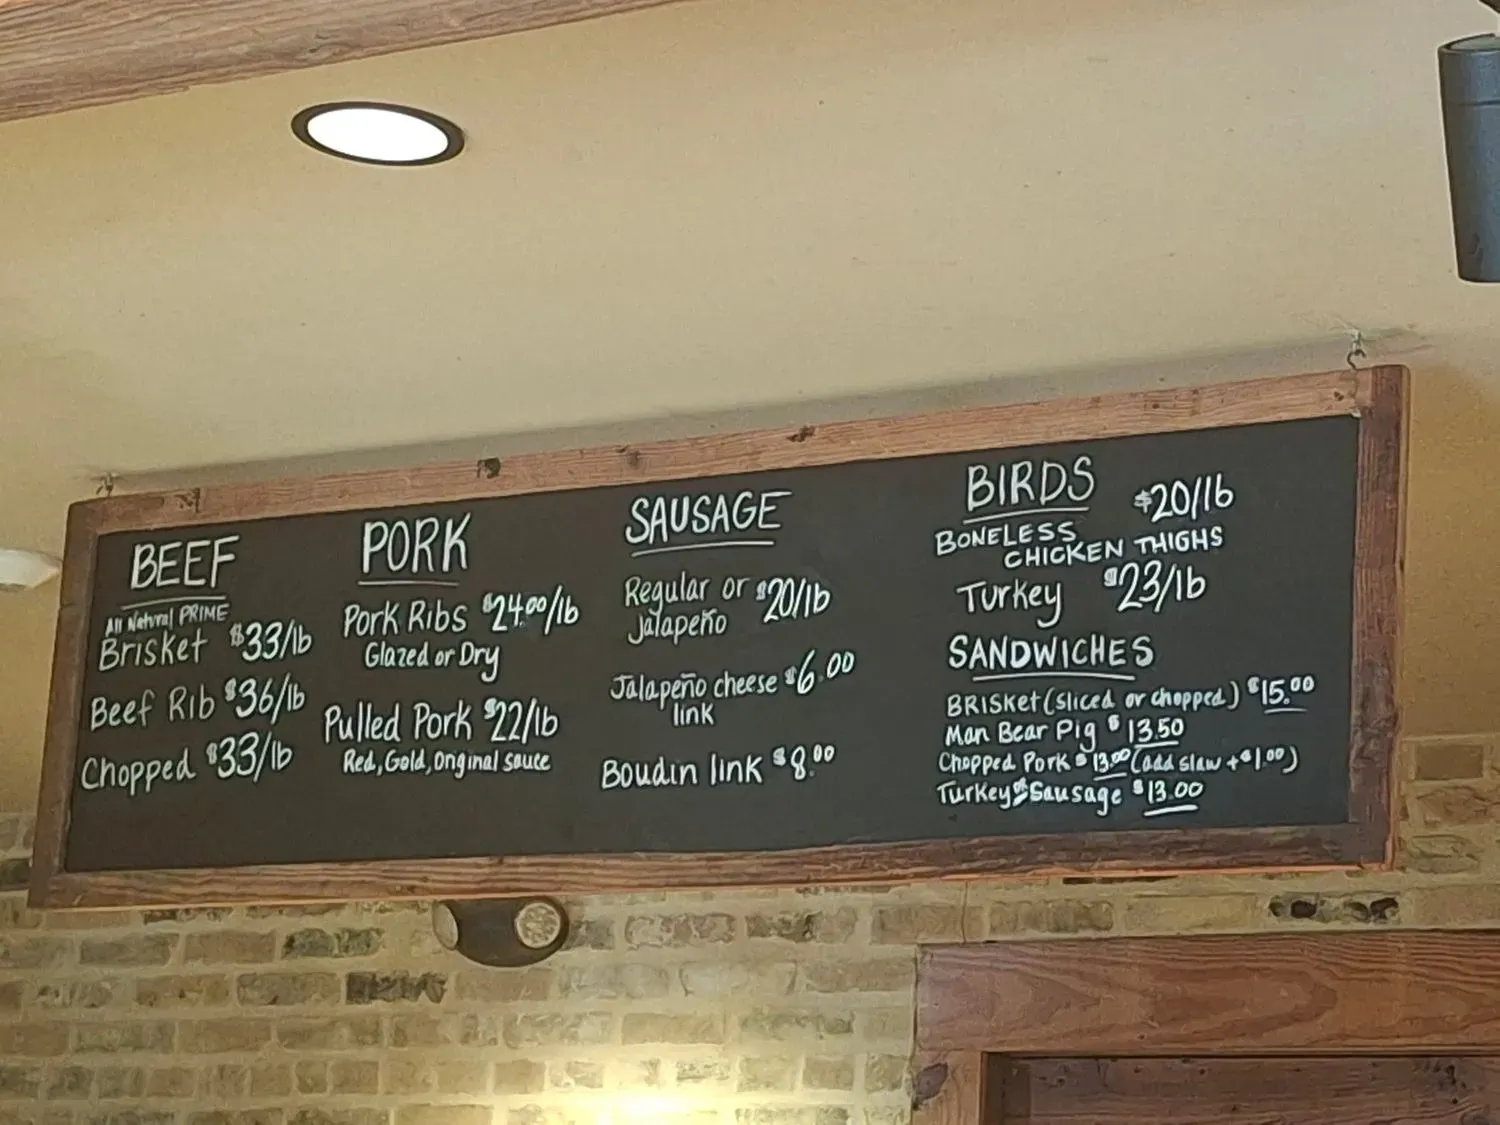 BEEF
All Natural PRIME
Brisket $33/lb
Beef Rib $36/lb
Chopped $33/lb
PORK
Pork Ribs $24.00/lb
Glazed or Dry
Pulled Pork $22/lb
Red, Gold, Original sauce
SAUSAGE
Regular or $20/lb
Jalapeño
Jalapeño cheese $6.00
link
Boudin link $8.00
BIRDS
$20/lb
BONELESS
CHICKEN THIGHS
Turkey $23/lb
SANDWICHES
BRISKET (Sliced or chopped) $15.00
Man Bear Pig $13.50
Chopped Pork $13.00 (add slaw +$1.00)
Turkey or Sausage $13.00